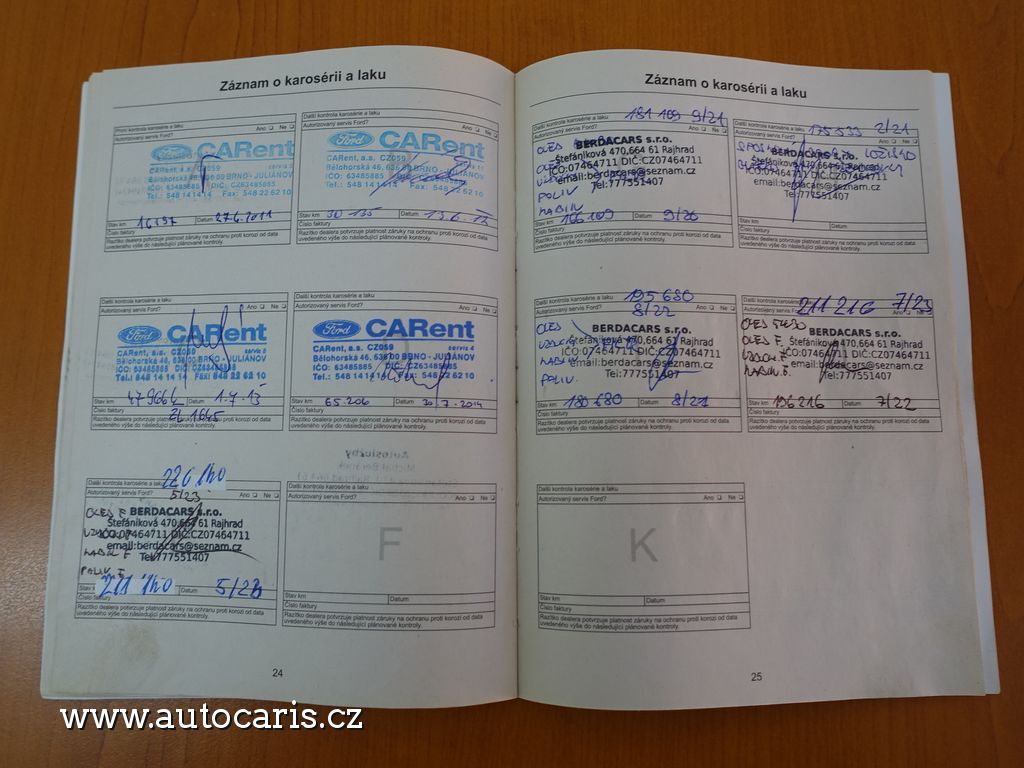 Záznam o karosérii a laku
První kontrola karosérie a laku
Autorizovaný servis Ford? Ano Ne
Ford CARent
servis 2
Bělohorská 46, 636 00 BRNO - JULIÁNOV
IČO: 63485885 DIČ: CZ63485885
Tel.: 548 14 14 14 Fax: 548 22 62 10
Stav km 16197 Datum 27.6.2011
Číslo faktury
Razítko dealera potvrzuje platnost záruky na ochranu proti korozi od data
uvedeného výše do následující plánované kontroly.
Další kontrola karosérie a laku
Autorizovaný servis Ford? Ano Ne
Ford CARent
CARent, a.s. CZ059
Bělohorská 46, 636 00 BRNO - JULIÁNOV
IČO: 63485885
Tel.: 548 14 14 14 Fax: 548 22 62 10
Stav km 30 135 Datum 13.6.12
Číslo faktury
Razítko dealera potvrzuje platnost záruky na ochranu proti korozi od data
uvedeného výše do následující plánované kontroly.
Další kontrola karosérie a laku
Ford CARent
CARent, a.s. CZ059 servis 2
Bělohorská 46, 636 00 BRNO - JULIÁNOV
IČO: 63485885 DIČ: CZ63485885
Tel.: 548 14 14 14 Fax: 548 22 62 10
Stav km Datum 1.7.13
Číslo faktury 261645
Razítko dealera potvrzuje platnost záruky na ochranu proti korozi od data
uvedeného výše do následující plánované kontroly.
Další kontrola karosérie a laku
Ano Ne
Ford CARent
CARent, a.s. CZ059 servis 4
Bělohorská 46, 636 00 BRNO - JULIÁNOV
IČO: 63485885 DIČ: CZ63485885
Tel.: 548 14 14 14 Fax: 548 22 62 10
Stav km 65.206 Datum 30.7.2014
Číslo faktury
Razítko dealera potvrzuje platnost záruky na ochranu proti korozi od data
uvedeného výše do následující plánované kontroly.
Další kontrola karosérie a laku 226 140
Autorizovaný servis Ford? 5/23 Ano Ne
OLEJ F.
BERDACARS s.r.o.
Štefánikova 470,664 61 Rajhrad
IČO:07464711 DIČ:CZ07464711
email:berdacars@seznam.cz
Tel:777551407
KABIN F
POLIV F
Stav km 211 140 Datum
Číslo faktury
Razítko dealera potvrzuje platnost záruky na ochranu proti korozi od data
uvedeného výše do následující plánované kontroly.
Další kontrola karosérie a laku
Autorizovaný servis Ford? Ano Ne
F
Stav km Datum
Číslo faktury
Razítko dealera potvrzuje platnost záruky na ochranu proti korozi od data
uvedeného výše do následující plánované kontroly.
24
Záznam o karosérii a laku
Další kontrola karosérie a laku 181 109 9/21
Autorizovaný servis Ford? Ano Ne
OLEJ
BERDACARS s.r.o.
Štefánikova 470,664 61 Rajhrad
IČO:07464711 DIČ:CZ07464711
email:berdacars@seznam.cz
Tel:777551407
POLIV
KABIN
Stav km 166 109 Datum 9/20
Číslo faktury
Razítko dealera potvrzuje platnost záruky na ochranu proti korozi od data
uvedeného výše do následující plánované kontroly.
Další kontrola karosérie a laku
Autorizovaný servis Ford? 175 533 2/21
BERDACARS s.r.o. LOŽISKO
Štefánikova 470,664 61 Rajhrad
IČO:07464711 DIČ:CZ07464711
email:berdacars@seznam.cz
Tel:777551407
Stav km Datum
Číslo faktury
Razítko dealera potvrzuje platnost záruky na ochranu proti korozi od data
uvedeného výše do následující plánované kontroly.
Další kontrola karosérie a laku 195 680
Autorizovaný servis Ford? 8/22 Ano Ne
OLEJ
BERDACARS s.r.o.
Štefánikova 470,664 61 Rajhrad
IČO:07464711 DIČ:CZ07464711
email:berdacars@seznam.cz
Tel:777551407
KABIN
POLIV.
Stav km 180 680 Datum 8/21
Číslo faktury
Razítko dealera potvrzuje platnost záruky na ochranu proti korozi od data
uvedeného výše do následující plánované kontroly.
Další kontrola karosérie a laku 211 216 7/23
Autorizovaný servis Ford? Ano Ne
OLEJ 5W30
OLEJ F.
VZDUCH F.
KABIN F.
BERDACARS s.r.o.
Štefánikova 470,664 61 Rajhrad
IČO:07464711 DIČ:CZ07464711
email:berdacars@seznam.cz
Tel:777551407
Stav km 196 216 Datum 7/22
Číslo faktury
Razítko dealera potvrzuje platnost záruky na ochranu proti korozi od data
uvedeného výše do následující plánované kontroly.
Další kontrola karosérie a laku
Autorizovaný servis Ford? Ano Ne
K
Stav km Datum
Číslo faktury
Razítko dealera potvrzuje platnost záruky na ochranu proti korozi od data
uvedeného výše do následující plánované kontroly.
25
www.autocaris.cz